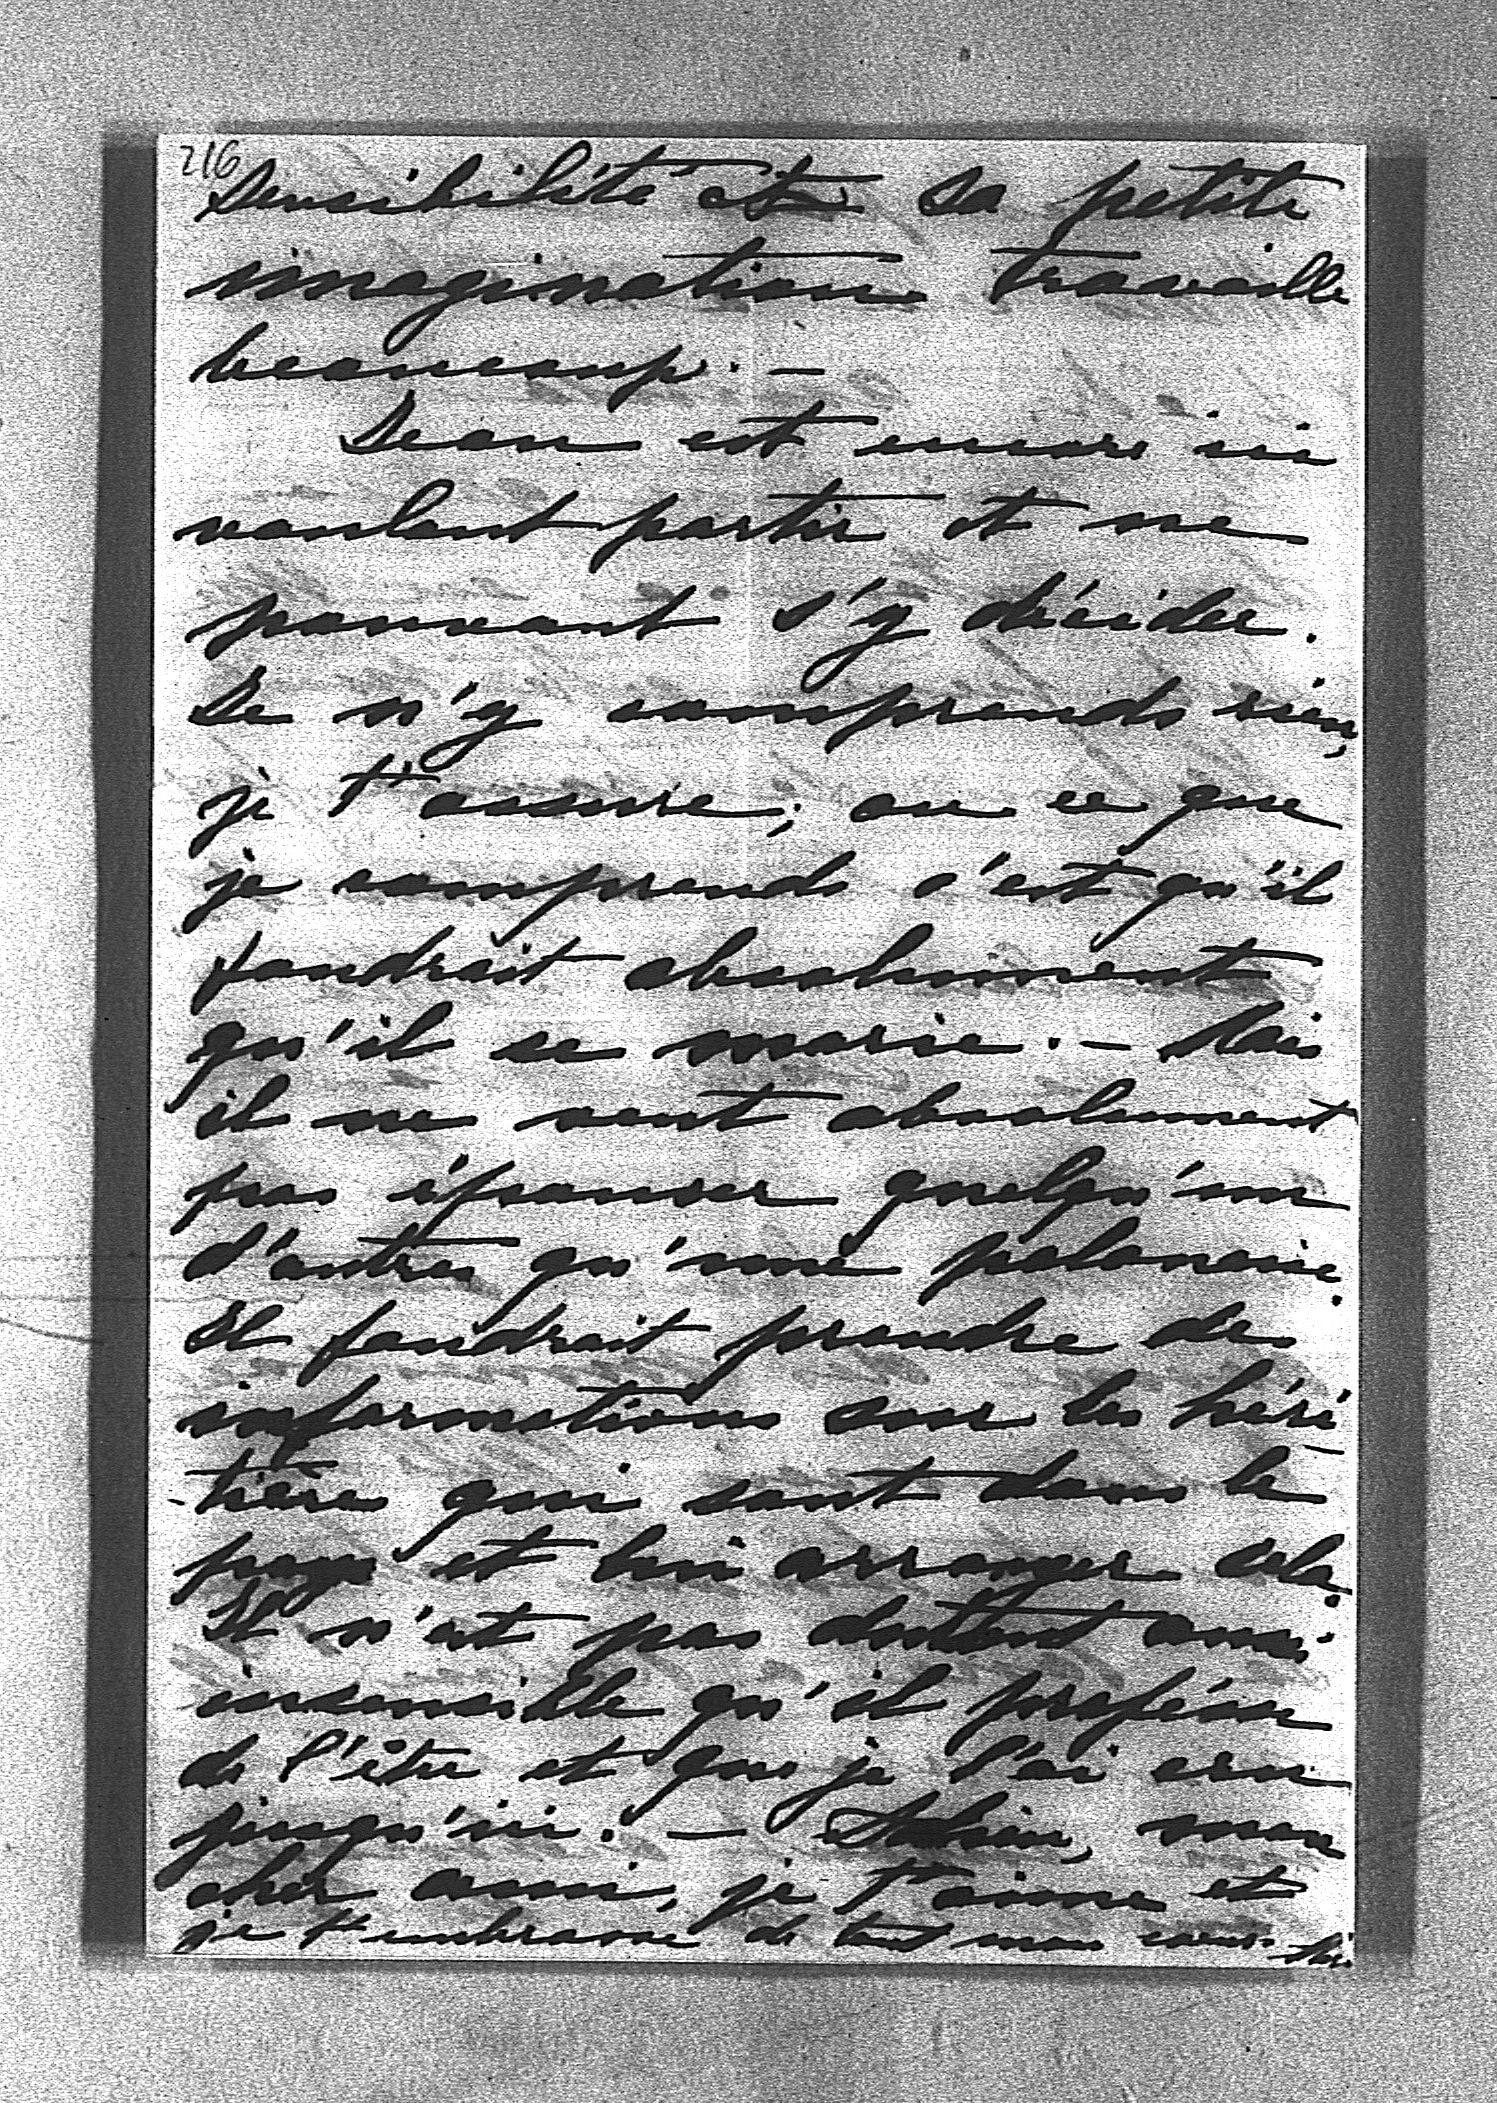 216
sensibilité et sa petite
imagination travaille
beaucoup. —
Jean est encore ici
voulant partir et ne
pouvant s'y décider.
Je n'y comprends rien,
je t'assure; ou ce que
je comprends c'est qu'il
faudrait absolument
qu'il se marie. — Mais
il ne veut absolument
pas épouser quelqu'un
d'autre qu'une polonaise.
Il faudrait prendre des
informations sur les héri
-tières qui sont dans le
pays et lui arranger cela.
Il n'est pas du tout aussi
insensible qu'il professe
de l'être et que je l'ai cru
jusqu'ici. — Adieu, mon
cher ami, je t'aime et
je t'embrasse de tout mon cœur.